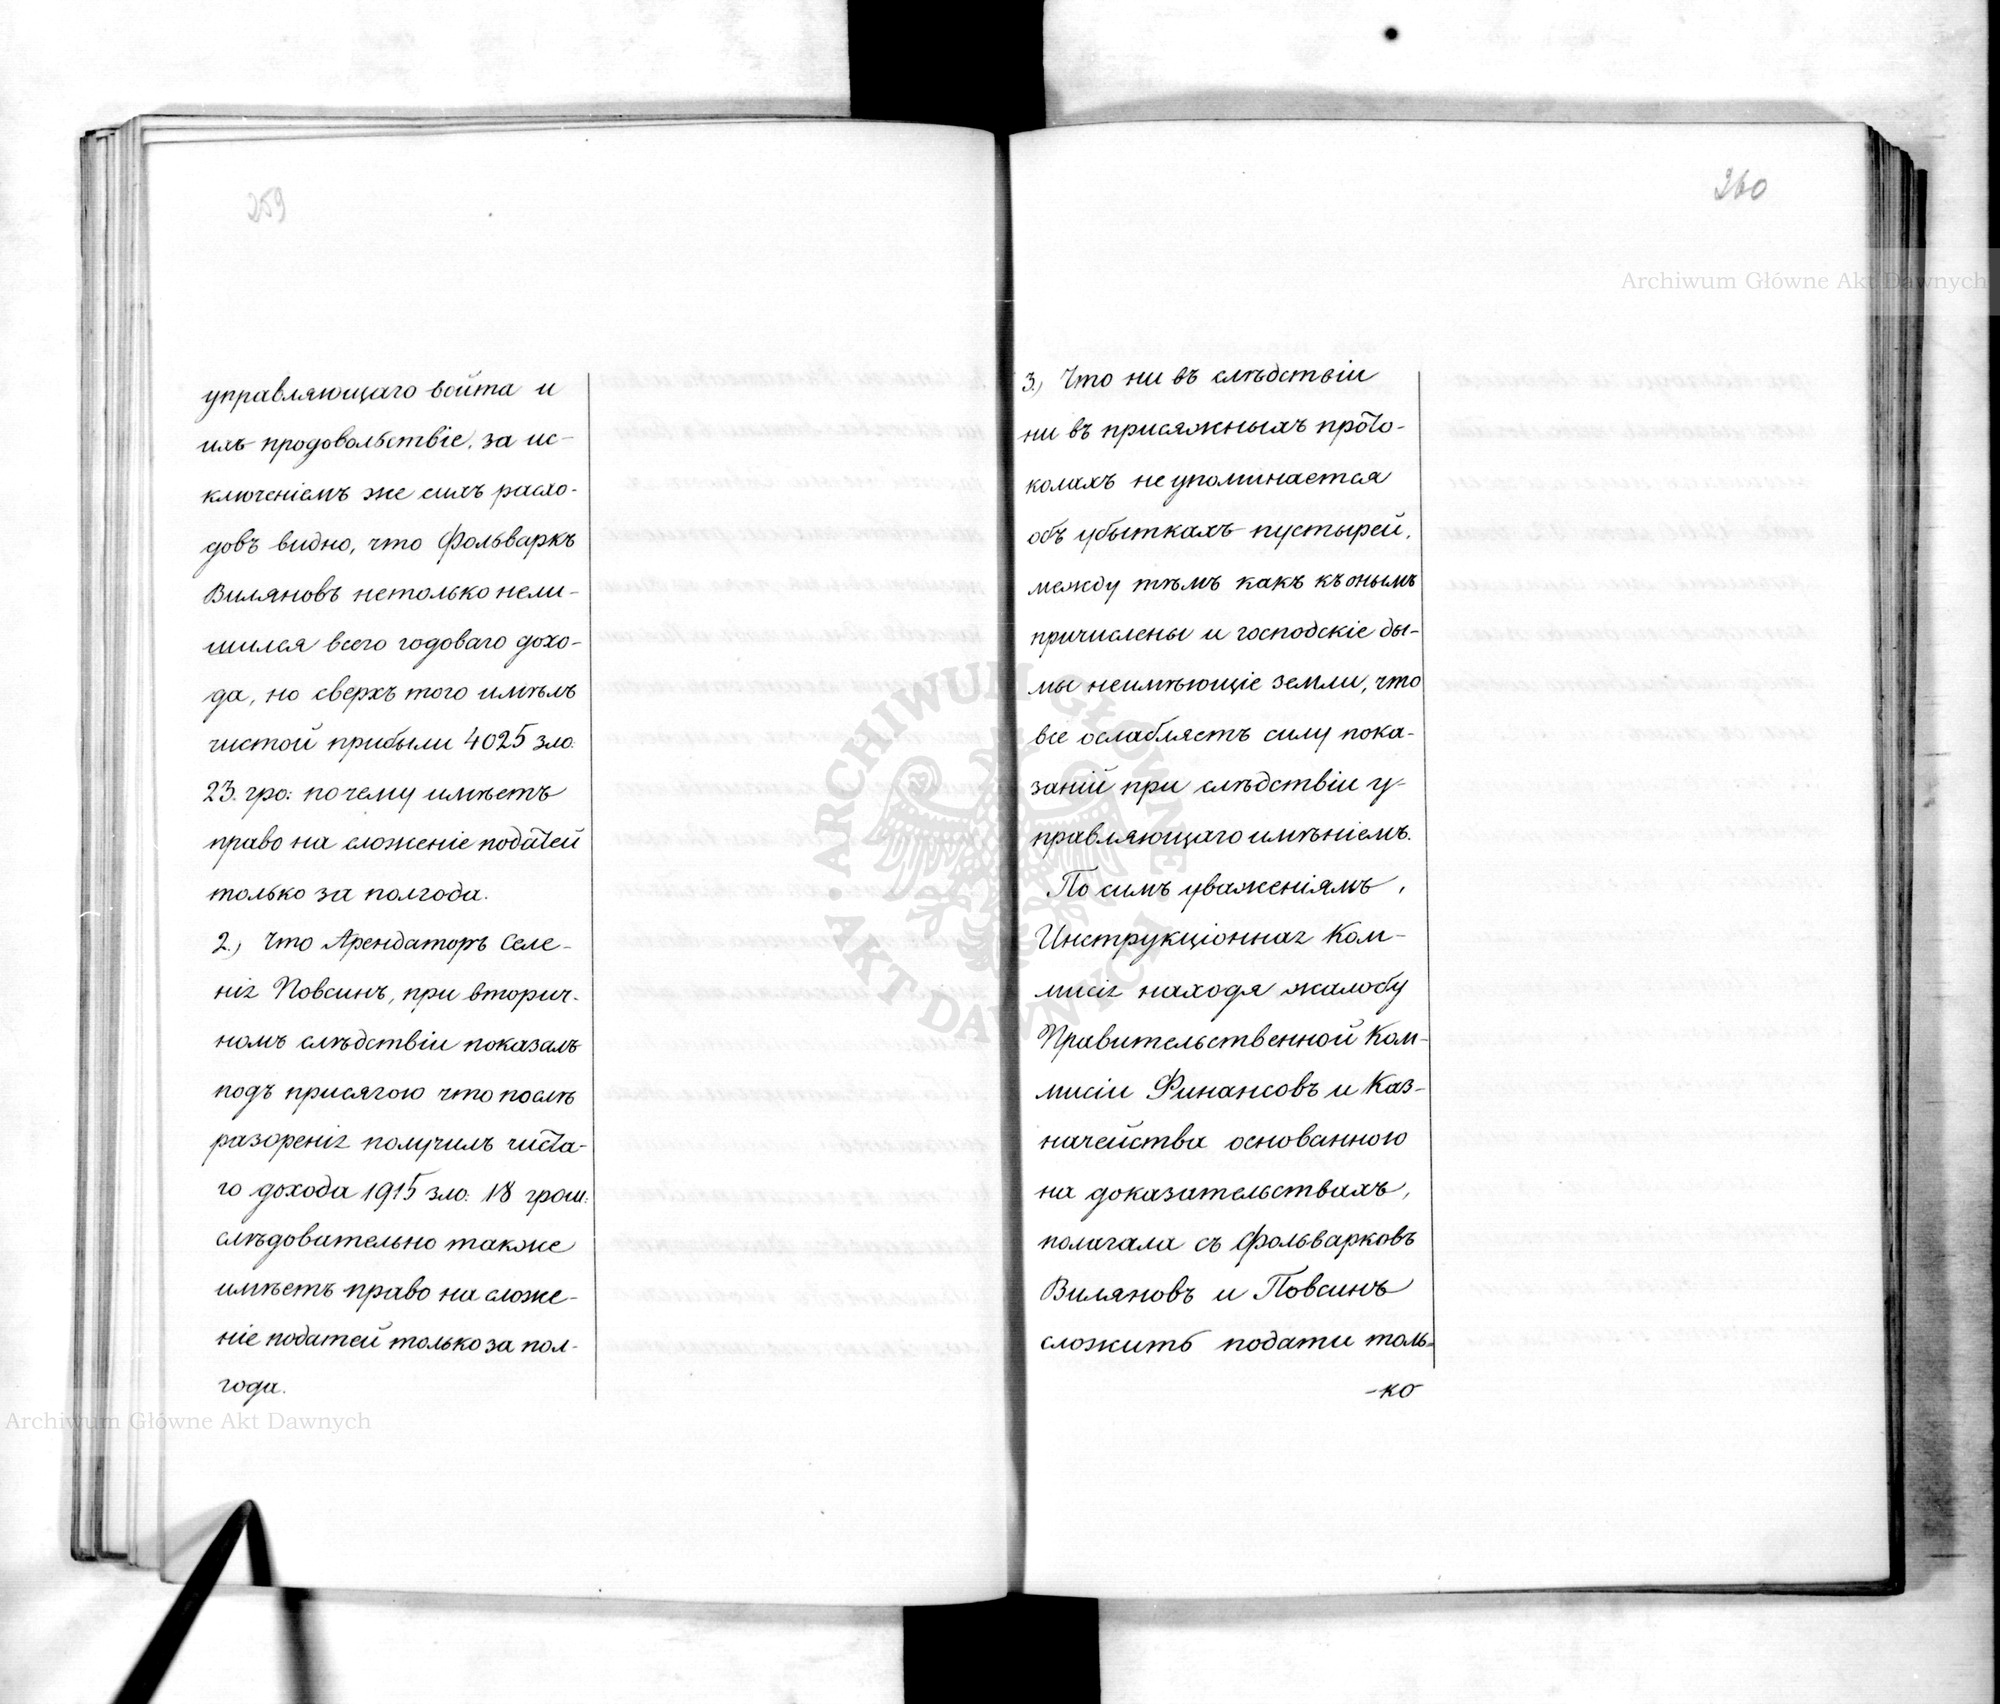 259
управляющаго войта и
ихъ продовольствіе, за ис-
ключеніемъ же сихъ расхо-
довъ видно, что Фольваркъ
Виляновъ нетолько нели-
шился всего годоваго дохо-
да, но сверхъ того имѣлъ
чистой прибыли 4025 зло:
23. гро: почему имѣетъ
право на сложеніе податей
только за полгода.
2., Что Арендаторъ Селе-
нія Повсинъ, при вторич-
номъ слѣдствіи показалъ
подъ присягою что послѣ
разоренія получилъ чиста-
го дохода 1915 зло: 18 грош:
слѣдовательно также
имѣетъ право на сложе-
ніе податей только за пол-
года.
260
3., Что ни въ слѣдствіи
ни въ присяжныхъ прото-
колахъ не упоминается
объ убыткахъ пустырей,
между тѣмъ какъ къ онымъ
причислены и господскіе ды-
мы неимѣющіе земли, что
все ослабляетъ силу пока-
заній при слѣдствіи у-
правляющаго имѣніемъ.
По симъ уваженіямъ,
Инструкціонная Ком-
мисія находя жалобу
Правительственной Ком-
мисіи Финансовъ и Каз-
начейства основанною
на доказательствахъ,
полагала съ Фольварковъ
Виляновъ и Повсинъ
сложить подати толь-
-ко
Archiwum Główne Akt Dawnych
ARCHIWUM GŁÓWNE AKT DAWNYCH
Archiwum Główne Akt Dawnych